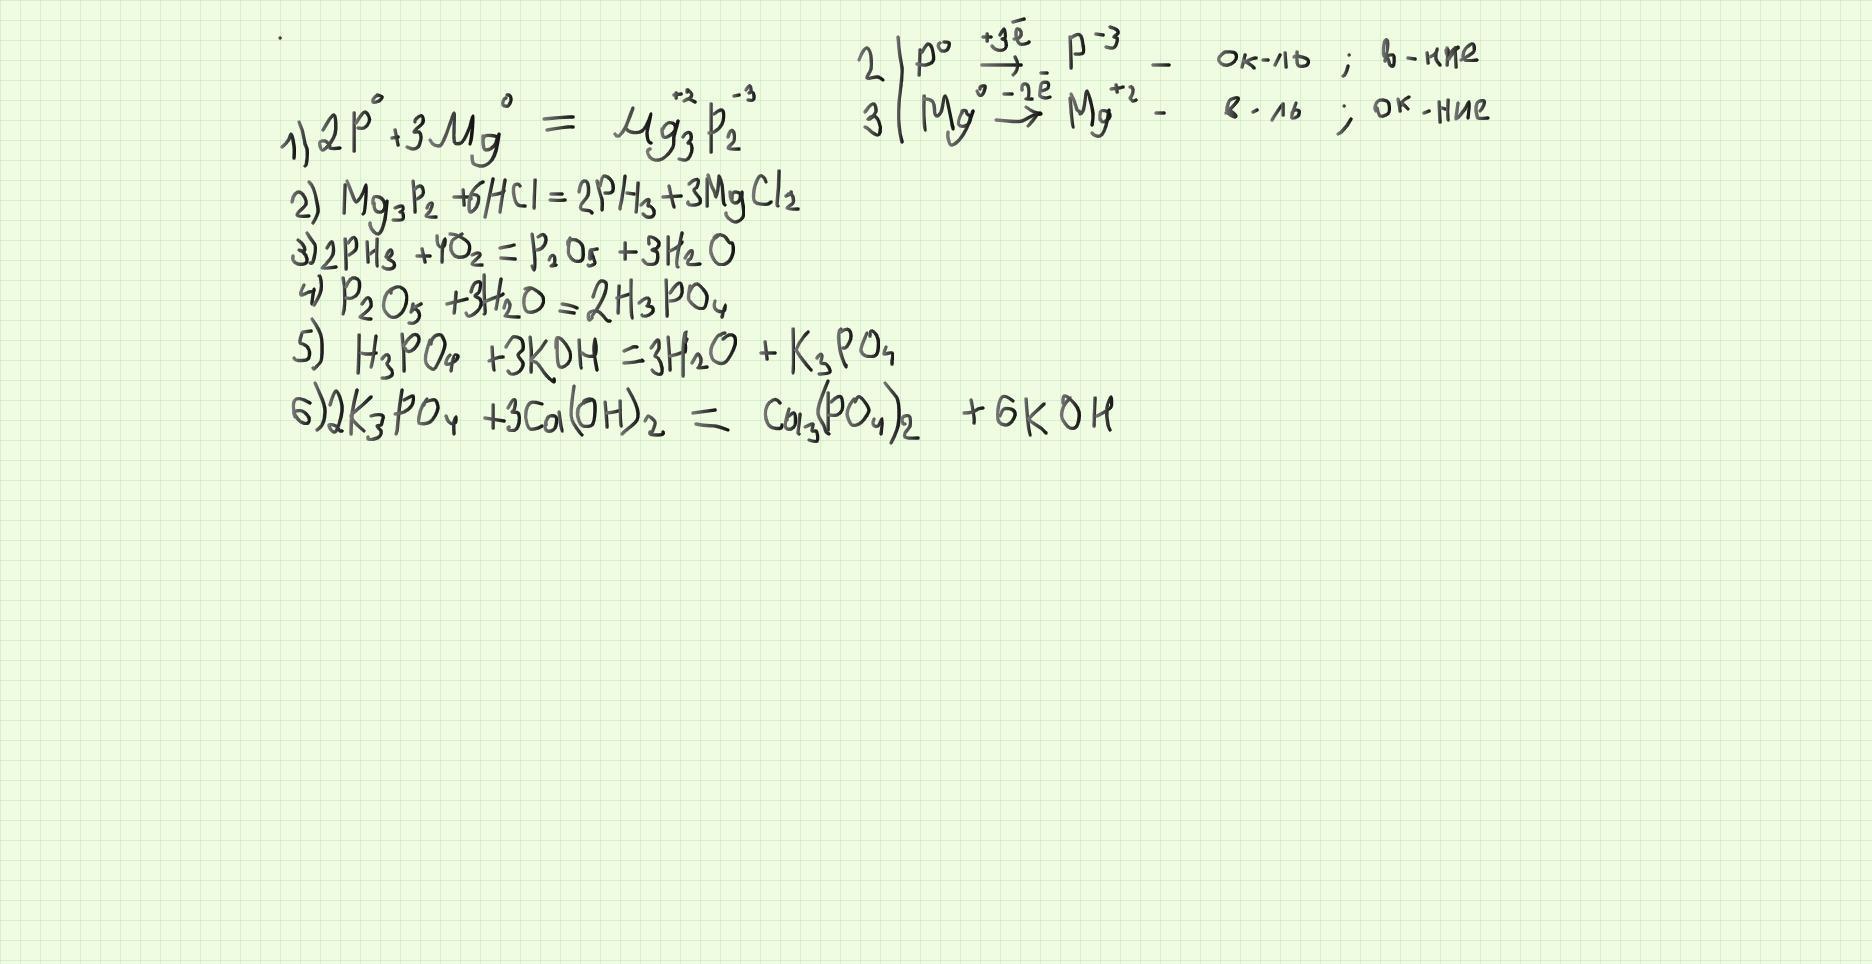 1) 2P⁰ + 3Mg⁰ = Mg₃⁺²P₂⁻³
2 | P⁰ +3ē → P⁻³ – ок-ль ; в-ние
3 | Mg⁰ -2ē → Mg⁺² - в-ль ; ок-ние
2) Mg₃P₂ + 6HCl = 2PH₃ + 3MgCl₂
3) 2PH₃ + 4O₂ = P₂O₅ + 3H₂O
4) P₂O₅ + 3H₂O = 2H₃PO₄
5) H₃PO₄ + 3KOH = 3H₂O + K₃PO₄
6) 2K₃PO₄ + 3Ca(OH)₂ = Ca₃(PO₄)₂ + 6KOH